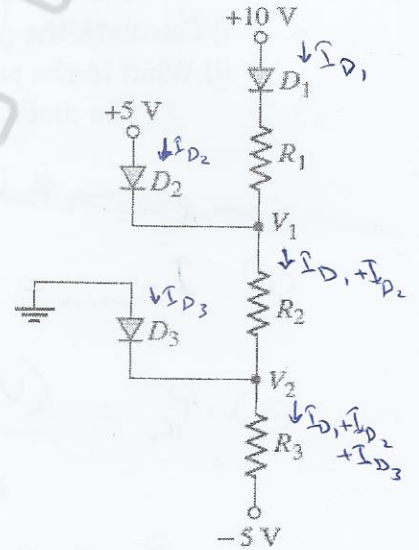 +10 V
↓ I_D1
D1
+5 V
↓ I_D2
D2
R1
V1
↓ I_D1 + I_D2
R2
↓ I_D3
D3
V2
↓ I_D1 + I_D2
+ I_D3
R3
−5 V